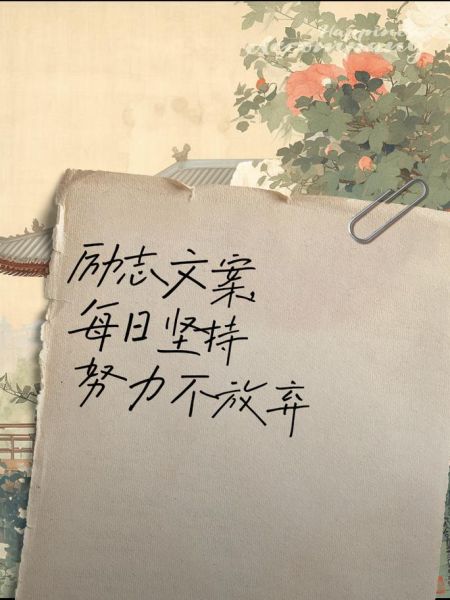 Happiness
励志文案
每日坚持
努力不放弃